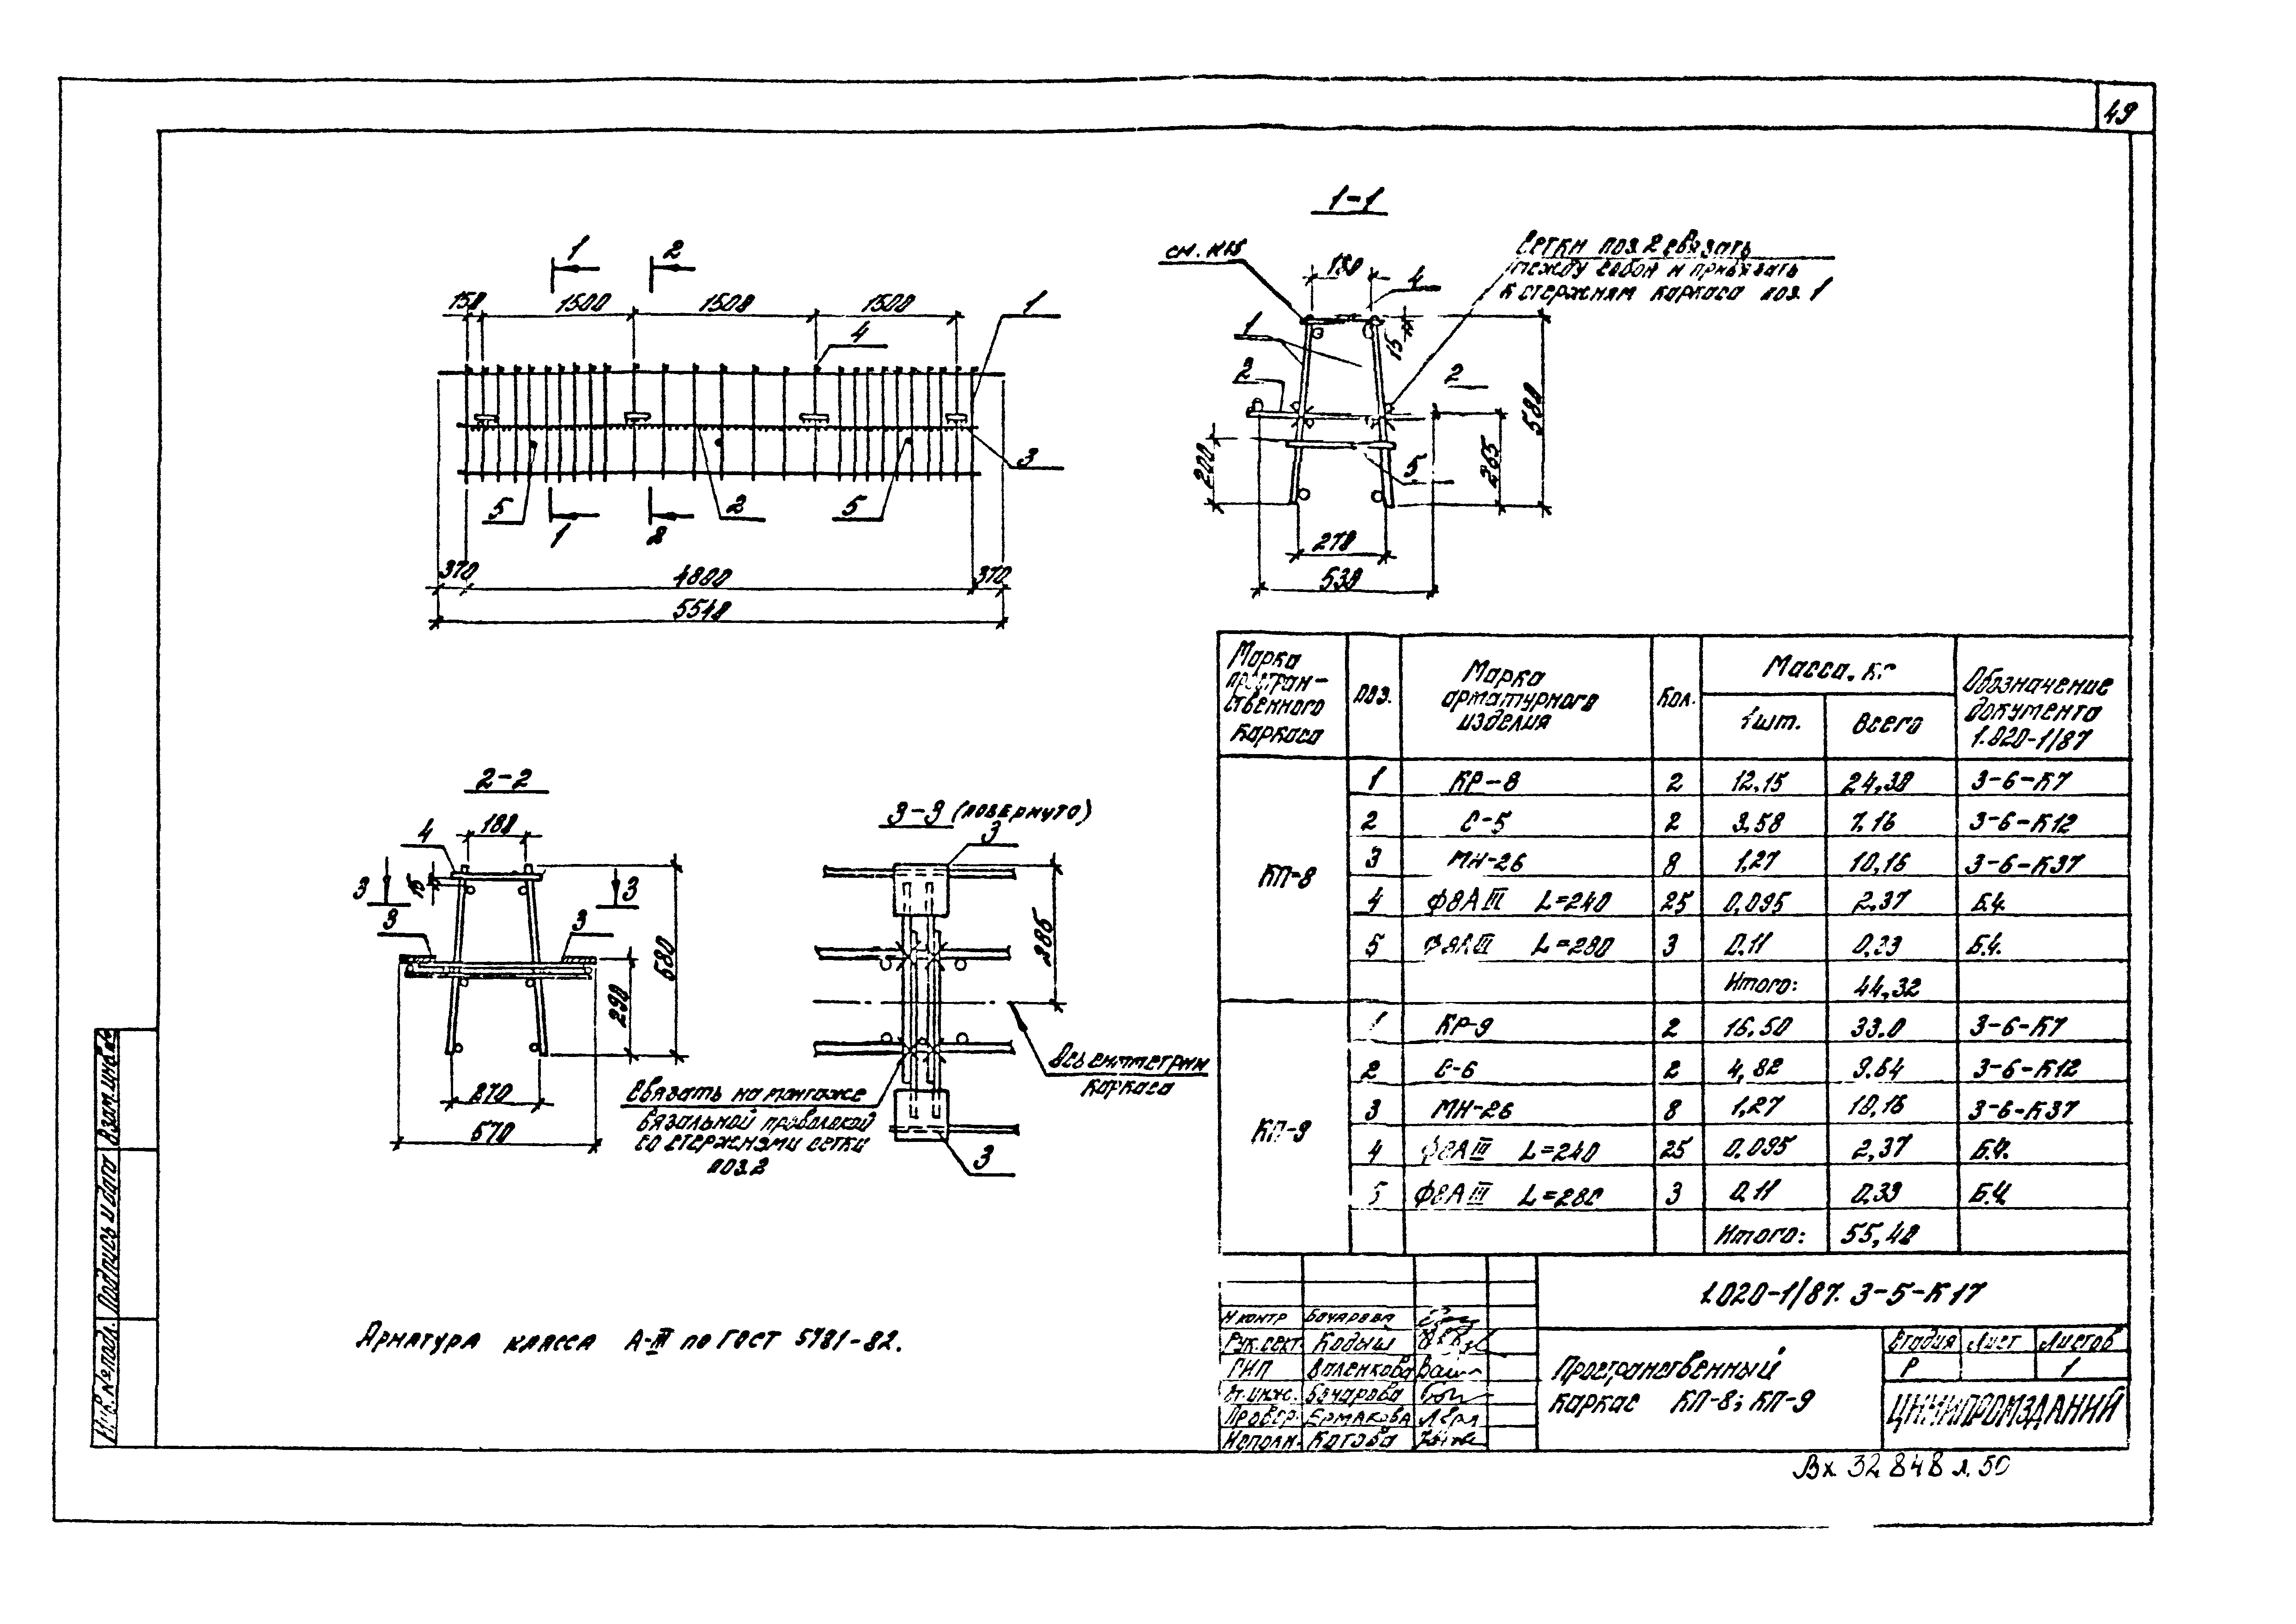 49
1-1
см. К15
180
4
Сетки поз. 2 связать
между собой и привязать
к стержням каркаса поз. 1
1
2
15
2
5
200
265
580
270
530
1
2
150
1500
1500
1500
1
4
3
5
1
2
2
5
370
4800
370
5540
2-2
4
180
3
15
3
3
3
580
290
270
570
3-3 (повернуто)
3
385
Ось симметрии
каркаса
Связать на монтаже
вязальной проволокой
со стержнями сетки
поз. 2
3
Марка простран-ственного каркаса
поз.
Марка арматурного изделия
Кол.
Масса, кг
1шт.
Всего
Обозначение документа 1.020-1/87
КП-8
1 КР-8 2 12,15 24,30 3-6-К7
2 С-5 2 3,58 7,16 3-6-К12
3 МН-26 8 1,27 10,16 3-6-К37
4 ф8АIII L=240 25 0,095 2,37 Б.Ч.
5 ф8АIII L=280 3 0,11 0,33 Б.Ч.
Итого: 44,32
КП-9
1 КР-9 2 16,50 33.0 3-6-К7
2 С-6 2 4,82 9.64 3-6-К12
3 МН-26 8 1,27 10,16 3-6-К37
4 ф8АIII L=240 25 0,095 2,37 Б.Ч.
5 ф8АIII L=280 3 0,11 0,33 Б.Ч.
Итого: 55,40
Арматура класса А-III по ГОСТ 5781-82.
1.020-1/87. 3-5-К17
Н.контр Бочарова
Рук.сект. Кодыш
ГИП Валенкова
Ст.инж. Бочарова
Провер. Ермакова
Исполн. Котова
Пространственный
каркас КП-8; КП-9
Стадия Лист Листов
Р 1
ЦНИИПРОМЗДАНИЙ
Вх 32848 л. 50
Инв.№подл. Подпись и дата Взам.инв.№